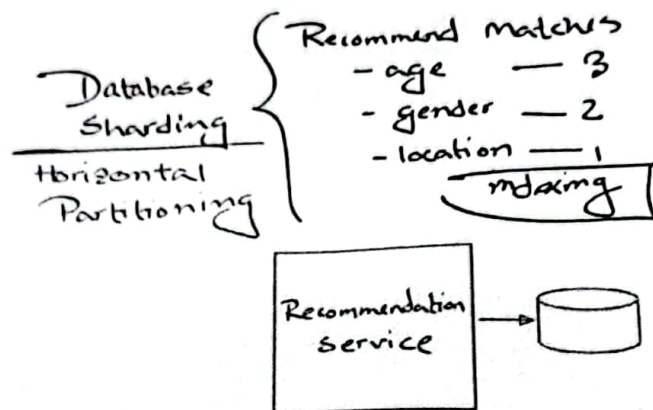 Database
Sharding
Horizontal
Partitioning
Recommend matches
- age — 3
- gender — 2
- location — 1
indexing
Recommendation
service